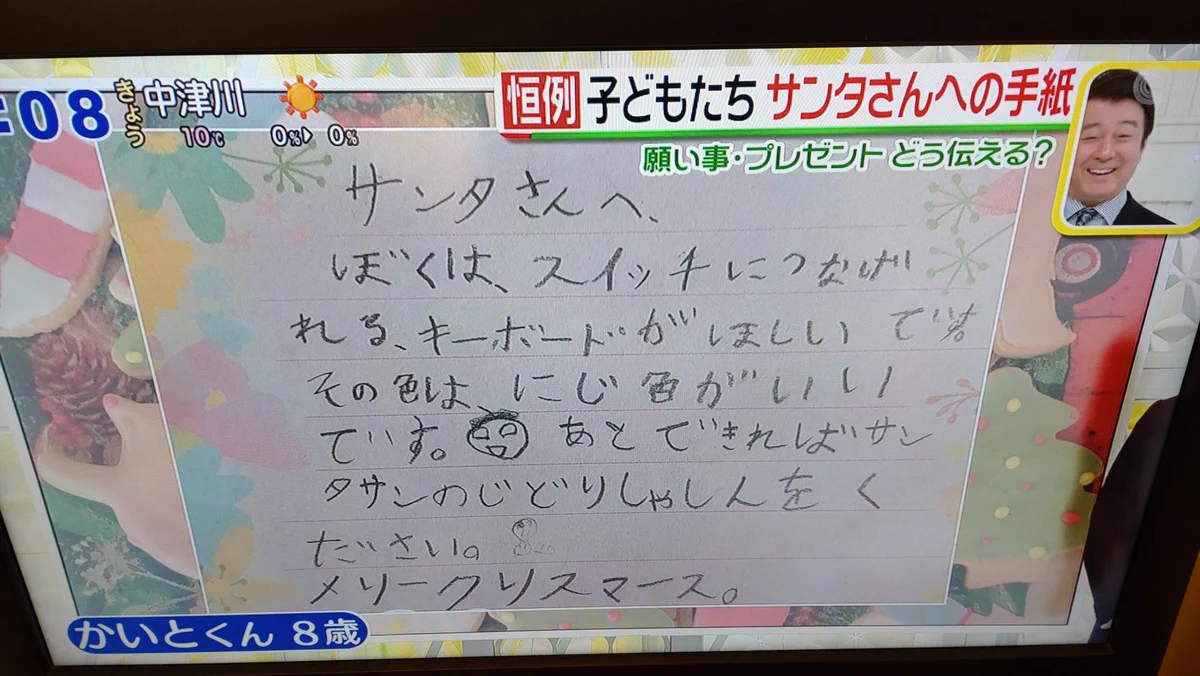 :08
きょう
中津川
10℃ 0%▶0%
恒例 子どもたち サンタさんへの手紙
願い事・プレゼント どう伝える?
サンタさんへ、
ぼくは、スイッチにつなげ
れる、キーボードがほしいです。
その色は、にじ色がいい
です。あとできればサン
タサンのじどりしゃしんをく
ださい。
メリークリスマース。
かいとくん 8歳